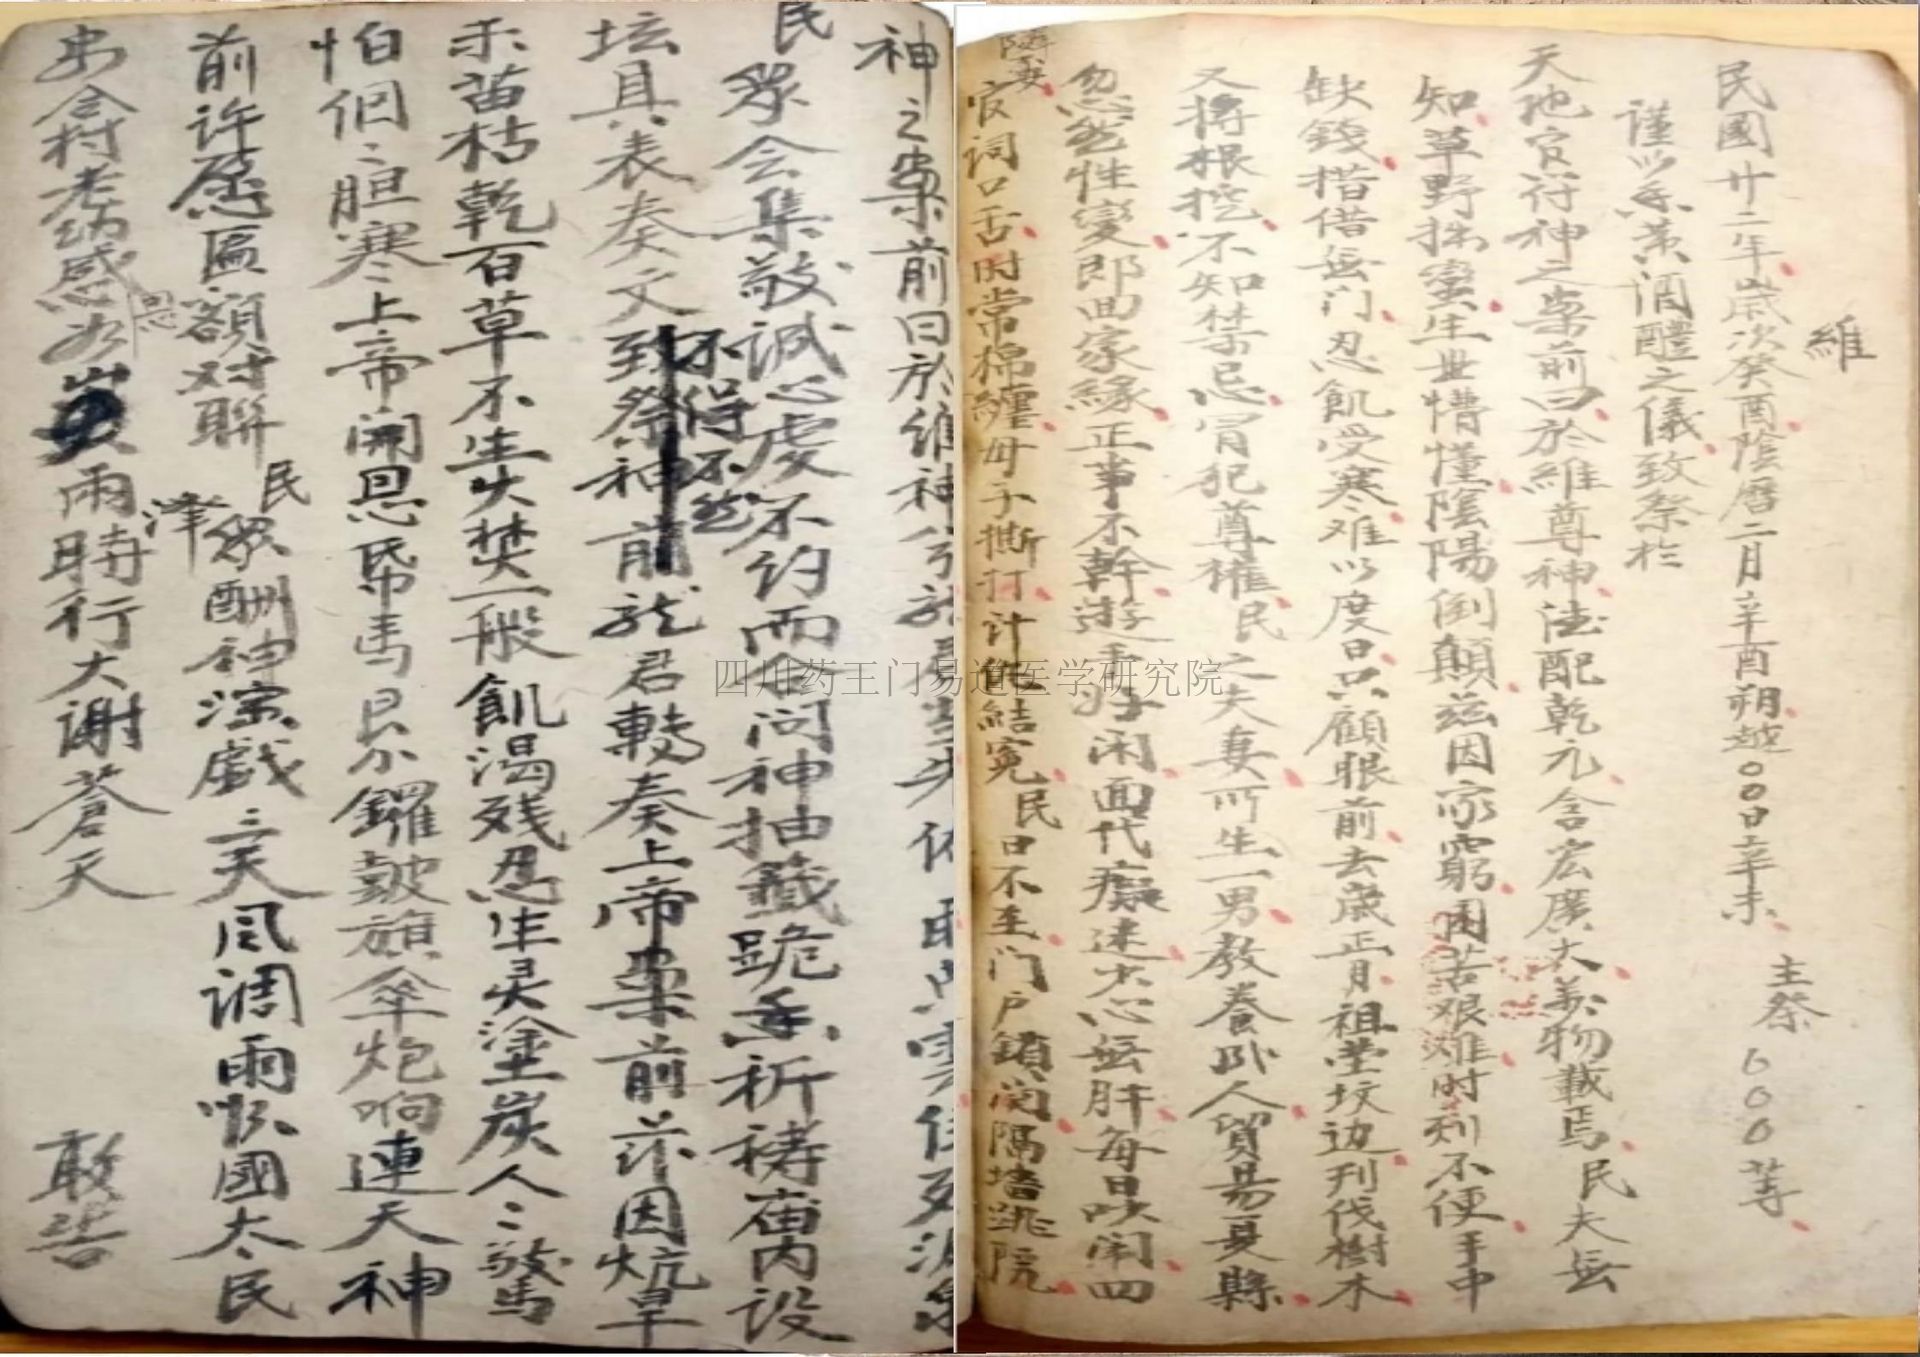 維
民國廿二年歲次癸酉陰曆二月辛酉朔越〇〇日辛未 主祭〇〇〇等
謹以香蒸酒醴之儀致祭於
天地官符神之案前曰於維尊神法配乾元含宏廣大萬物載焉民夫無
知草野拙蠻生世懵懂陰陽倒顛茲因家窮困苦艱难时利不便手中
缺錢措借無门忍飢受寒难以度日只顧眼前去歲正月祖塋坟边刋伐樹木
又将根挖不知禁忌冐犯尊權民之夫妻所生一男教養卧人貿易夏縣
忽然性變郎曲家緣正事不幹遊手好闲面代癡迷少心無肝每日吵闹四
隣
官詞口舌时常棉纏母子撕打计般結寃民日不至门户鎖闭隔墙跳院
神之案前曰於维神
民衆会集敬诚心虔不约而合问神抽籤跪香祈祷庙内设
不得不然
坛具表奏文致祭神前龙君轉奏上帝案前兹因炕旱
禾苗枯乾百草不生火焚一般飢渴残忍生灵塗炭人〻
怕個〻胆寒上帝開恩 馬 鑼鼓旗傘炮响連天神
前许愿匾额对聯民衆酬神演戲三天风调雨順國太民
安合村老纳感恩 雨時行大谢蒼天 敢告
四川药王门易道医学研究院